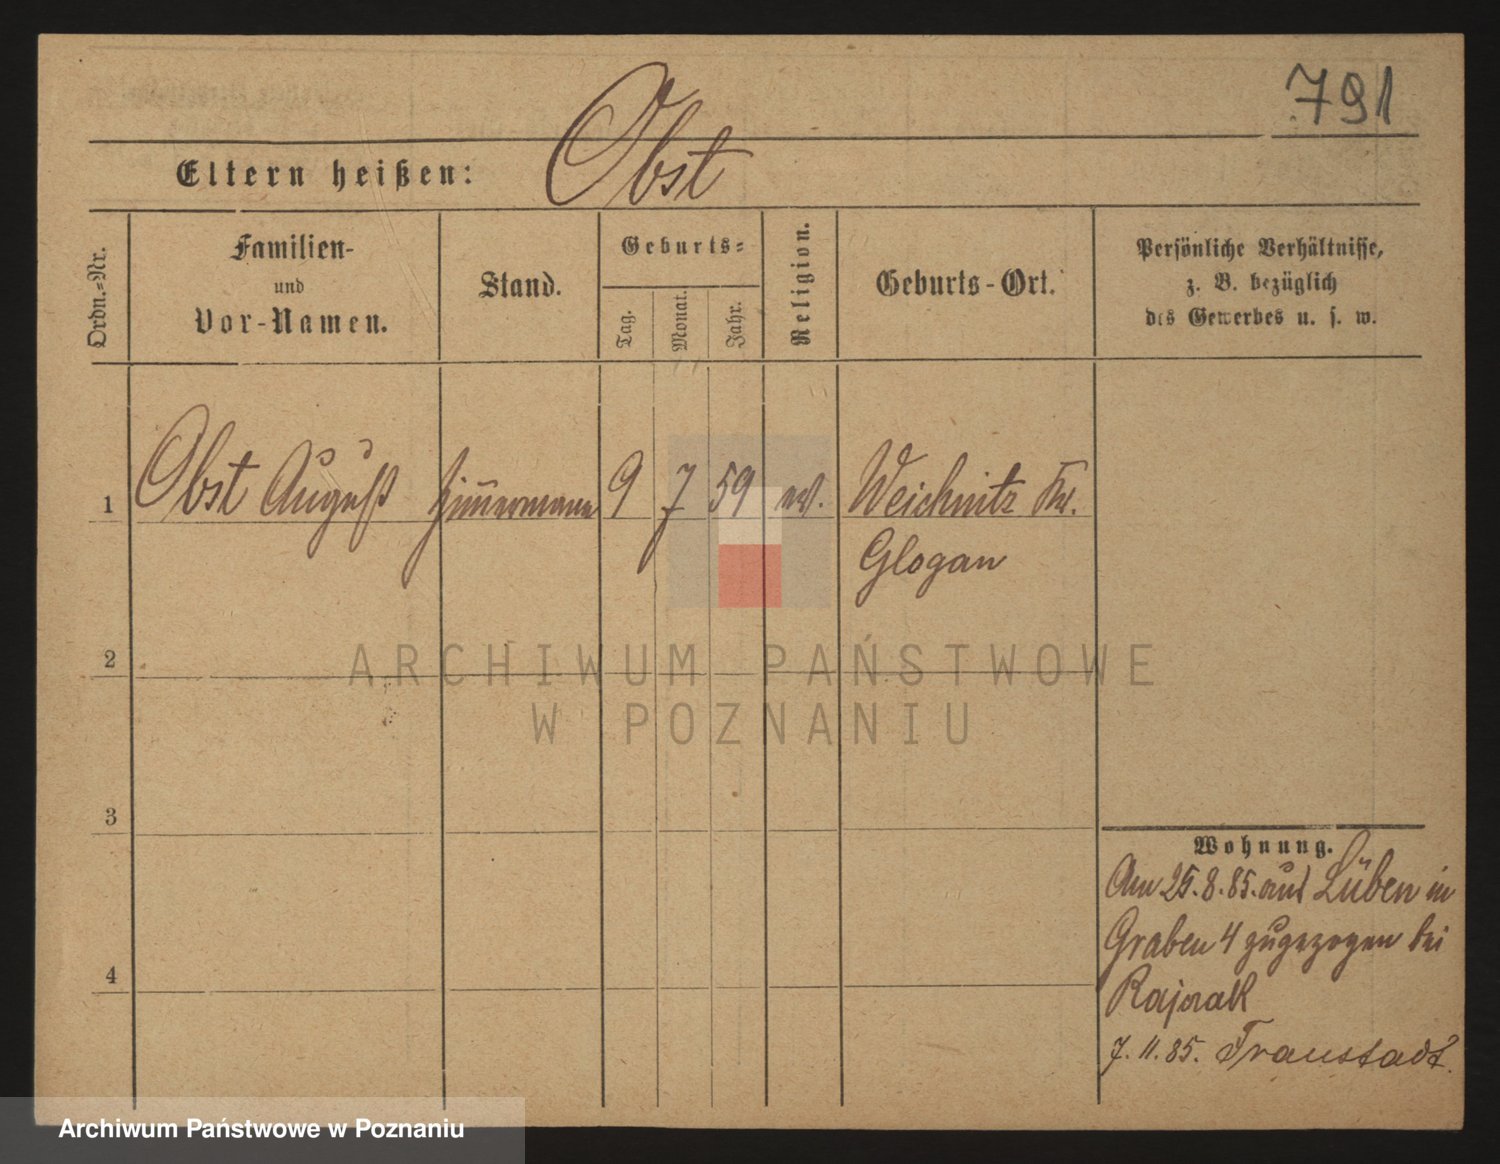 791
Eltern heißen: Obst
Ordn.-Nr.
Familien-
und
Vor-Namen.
Stand.
Geburts-
Tag.
Monat.
Jahr.
Religion.
Geburts-Ort.
Persönliche Verhältnisse,
z. B. bezüglich
des Gewerbes u. s. w.
1 Obst August Zimmermann 9 7 59 ev. Weichnitz Kr.
Glogau
2
3
4
Wohnung.
Am 25.8.85. aus Lüben in
Graben 4 zugezogen bei
7.11.85. Fraustadt.
ARCHIWUM PAŃSTWOWE
W POZNANIU
Archiwum Państwowe w Poznaniu